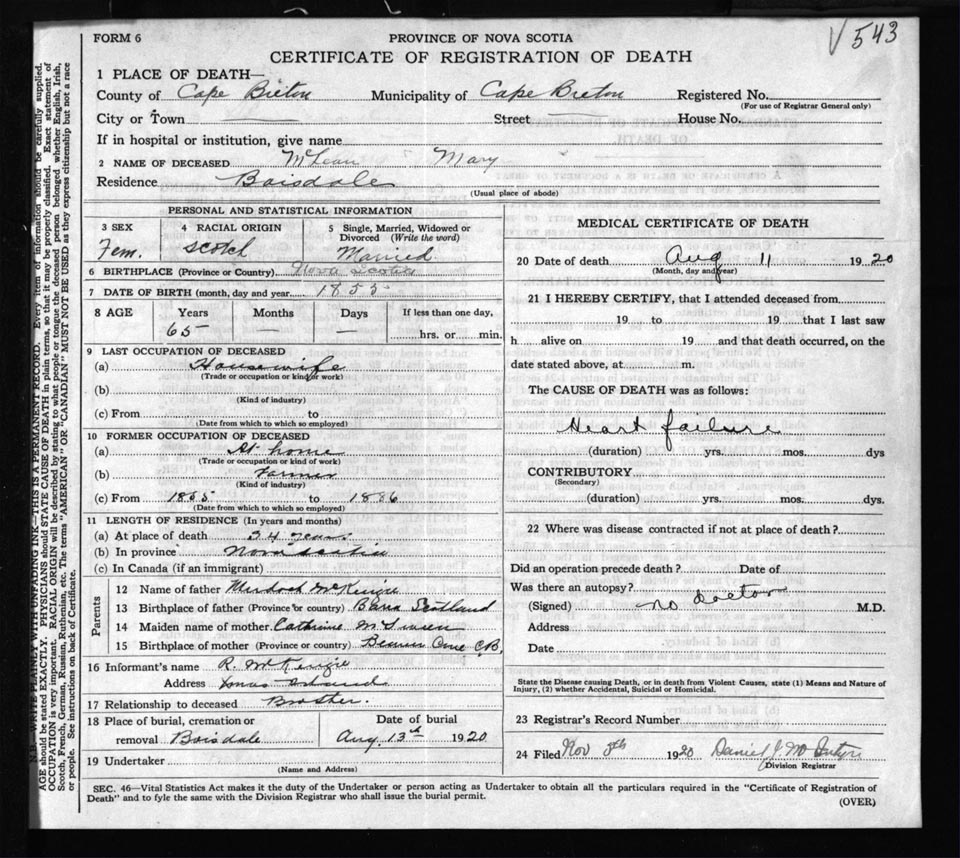 V 543
FORM 6
PROVINCE OF NOVA SCOTIA
CERTIFICATE OF REGISTRATION OF DEATH
1 PLACE OF DEATH—
County of Cape Breton Municipality of Cape Breton Registered No.
(For use of Registrar General only)
City or Town Street House No.
If in hospital or institution, give name
2 NAME OF DECEASED McLean Mary
Residence Boisdale
(Usual place of abode)
PERSONAL AND STATISTICAL INFORMATION
3 SEX 4 RACIAL ORIGIN 5 Single, Married, Widowed or Divorced (Write the word)
Fem. Scotch Married
6 BIRTHPLACE (Province or Country) Nova Scotia
7 DATE OF BIRTH (month, day and year) 1855
8 AGE Years Months Days If less than one day,
65 — — hrs. or min.
9 LAST OCCUPATION OF DECEASED
(a) Housewife
(Trade or occupation or kind of work)
(b)
(Kind of industry)
(c) From to
(Date from which to which so employed)
10 FORMER OCCUPATION OF DECEASED
(a) At home
(Trade or occupation or kind of work)
(b) Farmer
(Kind of industry)
(c) From 1855 to 1886
(Date from which to which so employed)
11 LENGTH OF RESIDENCE (In years and months)
(a) At place of death 34 years
(b) In province Nova Scotia
(c) In Canada (if an immigrant)
Parents
12 Name of father Murdoch McKenzie
13 Birthplace of father (Province or country) Barra Scotland
14 Maiden name of mother Catherine
15 Birthplace of mother (Province or country) Cove C.B.
16 Informant's name R. McKenzie
Address Island
17 Relationship to deceased Brother.
18 Place of burial, cremation or removal Boisdale Date of burial Aug. 13th 1920
19 Undertaker
(Name and Address)
MEDICAL CERTIFICATE OF DEATH
20 Date of death Aug 11 1920
(Month, day and year)
21 I HEREBY CERTIFY, that I attended deceased from
19 to 19 that I last saw
h alive on 19 and that death occurred, on the
date stated above, at m.
The CAUSE OF DEATH was as follows:
Heart failure
(duration) yrs. mos. dys
CONTRIBUTORY
(Secondary)
(duration) yrs. mos. dys.
22 Where was disease contracted if not at place of death?
Did an operation precede death? Date of
Was there an autopsy?
(Signed) no doctor M.D.
Address
Date
State the Disease causing Death, or in death from Violent Causes, state (1) Means and Nature of
Injury, (2) whether Accidental, Suicidal or Homicidal.
23 Registrar's Record Number
24 Filed Nov 8th 1920 Daniel J. McIntyre
Division Registrar
SEC. 46—Vital Statistics Act makes it the duty of the Undertaker or person acting as Undertaker to obtain all the particulars required in the "Certificate of Registration of
Death" and to fyle the same with the Division Registrar who shall issue the burial permit.
(OVER)
N.B.—WRITE PLAINLY WITH UNFADING INK—THIS IS A PERMANENT RECORD. Every item of information should be carefully supplied.
AGE should be stated EXACTLY. PHYSICIANS should STATE CAUSE OF DEATH in plain terms, so that it may be properly classified. Exact statement of
OCCUPATION is very important. RACIAL ORIGIN will be described by stating to what people or tongue the deceased person belonged whether English, Irish,
Scotch, French, German, Russian, Ruthenian, etc. The terms "AMERICAN" OR "CANADIAN" MUST NOT BE USED as they express citizenship but not a race
or people. See instructions on back of Certificate.